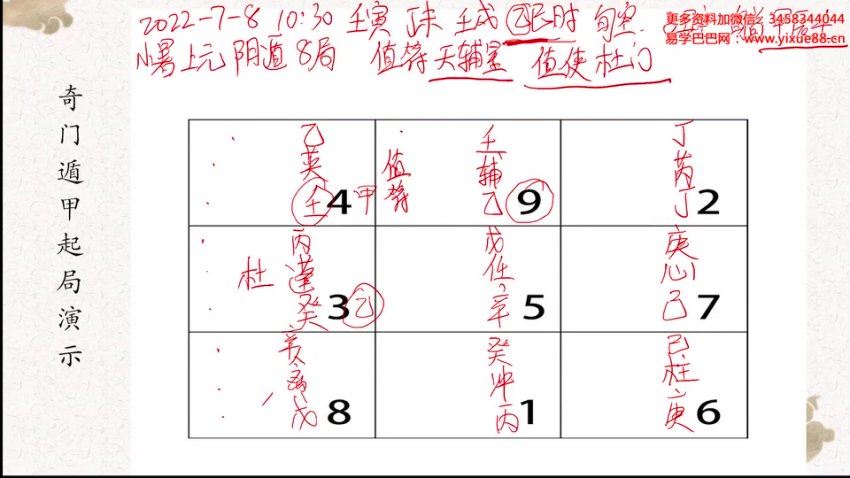 2022-7-8 10:30 壬寅 丁未 壬戌 乙巳时 旬空
更多资料加微信：3458344044
易学巴巴网：www.yixue88.cn
小暑上元 阴遁8局 值符天辅星 值使杜门
奇门遁甲起局演示
乙 英 壬 4 甲
值符 壬 辅 乙 9
丁 芮 丁 2
杜 丙 蓬 癸 3 乙
戊 任 辛 5
庚 心 己 7
戊 8
癸 冲 丙 1
己 柱 庚 6